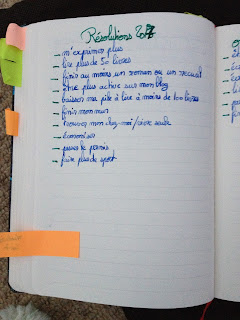 Résolutions 2017
- m'exprimer plus
- lire plus de 50 livres
- finir au moins un roman ou un recueil
- être plus active sur mon blog
- baisser ma pile à lire à moins de 100 livres
- finir mon
- trouver mon chez-moi / vivre seule
- économiser
- passer le permis
- faire plus de sport